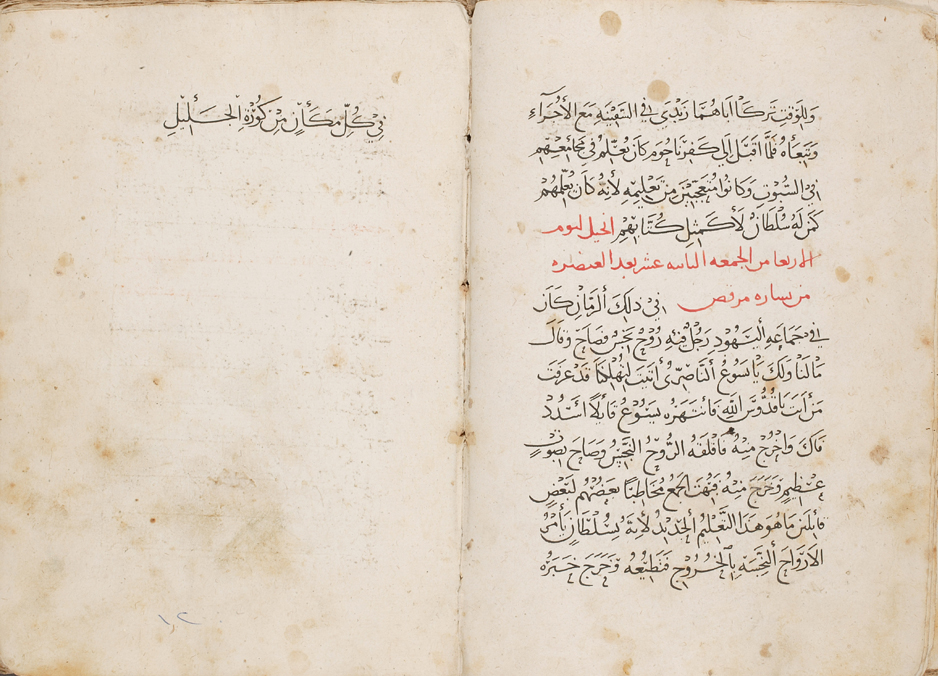 وَلِلوَقتِ تَركَا اَباهُمَا زَبْدِي في السَّفِيْنَةِ مَعَ الأُجَراءِ
وَتَبِعَاهُ فَلمَّا اقبَل اِلي كَفرنَاحُوم كَانَ يُعَلِّم فِي مَجَامعِهِم
فِي السُّبُوتِ وَكَانُوا مُتعَجِّبينَ مِن تَعلِيمِهِ لأَنِهُ كانَ يُعَلّمهُم
كمَن لَهُ سُلطَانٌ لَا كَمثِلِ كُتّابِهمِ انجيل ليوم
الاربعا من الجمعه التاسه عشر بعد العنصره
من بشاره مرقص فِي ذلِكَ ألزمَانِ كَانَ
في جَمَاعَةِ أليَهُودِ رَجُل فيِهِ رُوْحٌ نَجِسٌ فصَاحَ وقَالَ
مَالنَا وَلكَ يَا يَسُوعُ ألنَّاصِرِيُ أتَيتَ لتُهْلِكَنَا قَد عَرفت
مَن أنتَ يَا قُدُّوسَ اللّهِ فَانتَهَرَهُ يَسُوعُ قَايلًا انسَدد
فَاكَ وَاخْرُجْ مِنهُ فَاقلقَهُ الرُّوحُ النَّجِسُ وَصَاحَ بِصَوْتٍ
عَظِيمٍ وَخَرجَ مِنهُ فَبُهتَ الجَمعُ مُخَاطِبًا بَعضُهُم لبَعْضٍ
قايلينَ مَا هُوَ هَذَا التَّعْلِيمُ الجَدِيدُ لأنِهَ بِسُلطَانٍ يَأمُرُ
الارْوَاحَ ألنَّجِسَه بِالخُروْجِ فتُطيْعُه وَخَرجَ خَبَرُهُ
فِي كُلِّ مَكَانٍ مِنْ كُوْرَةِ الجَلِيْلِ
١٢